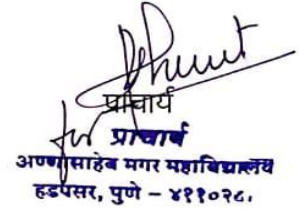 प्राचार्य
for प्राचार्य
अण्णासाहेब मगर महाविद्यालय
हडपसर, पुणे – ४११०२८.